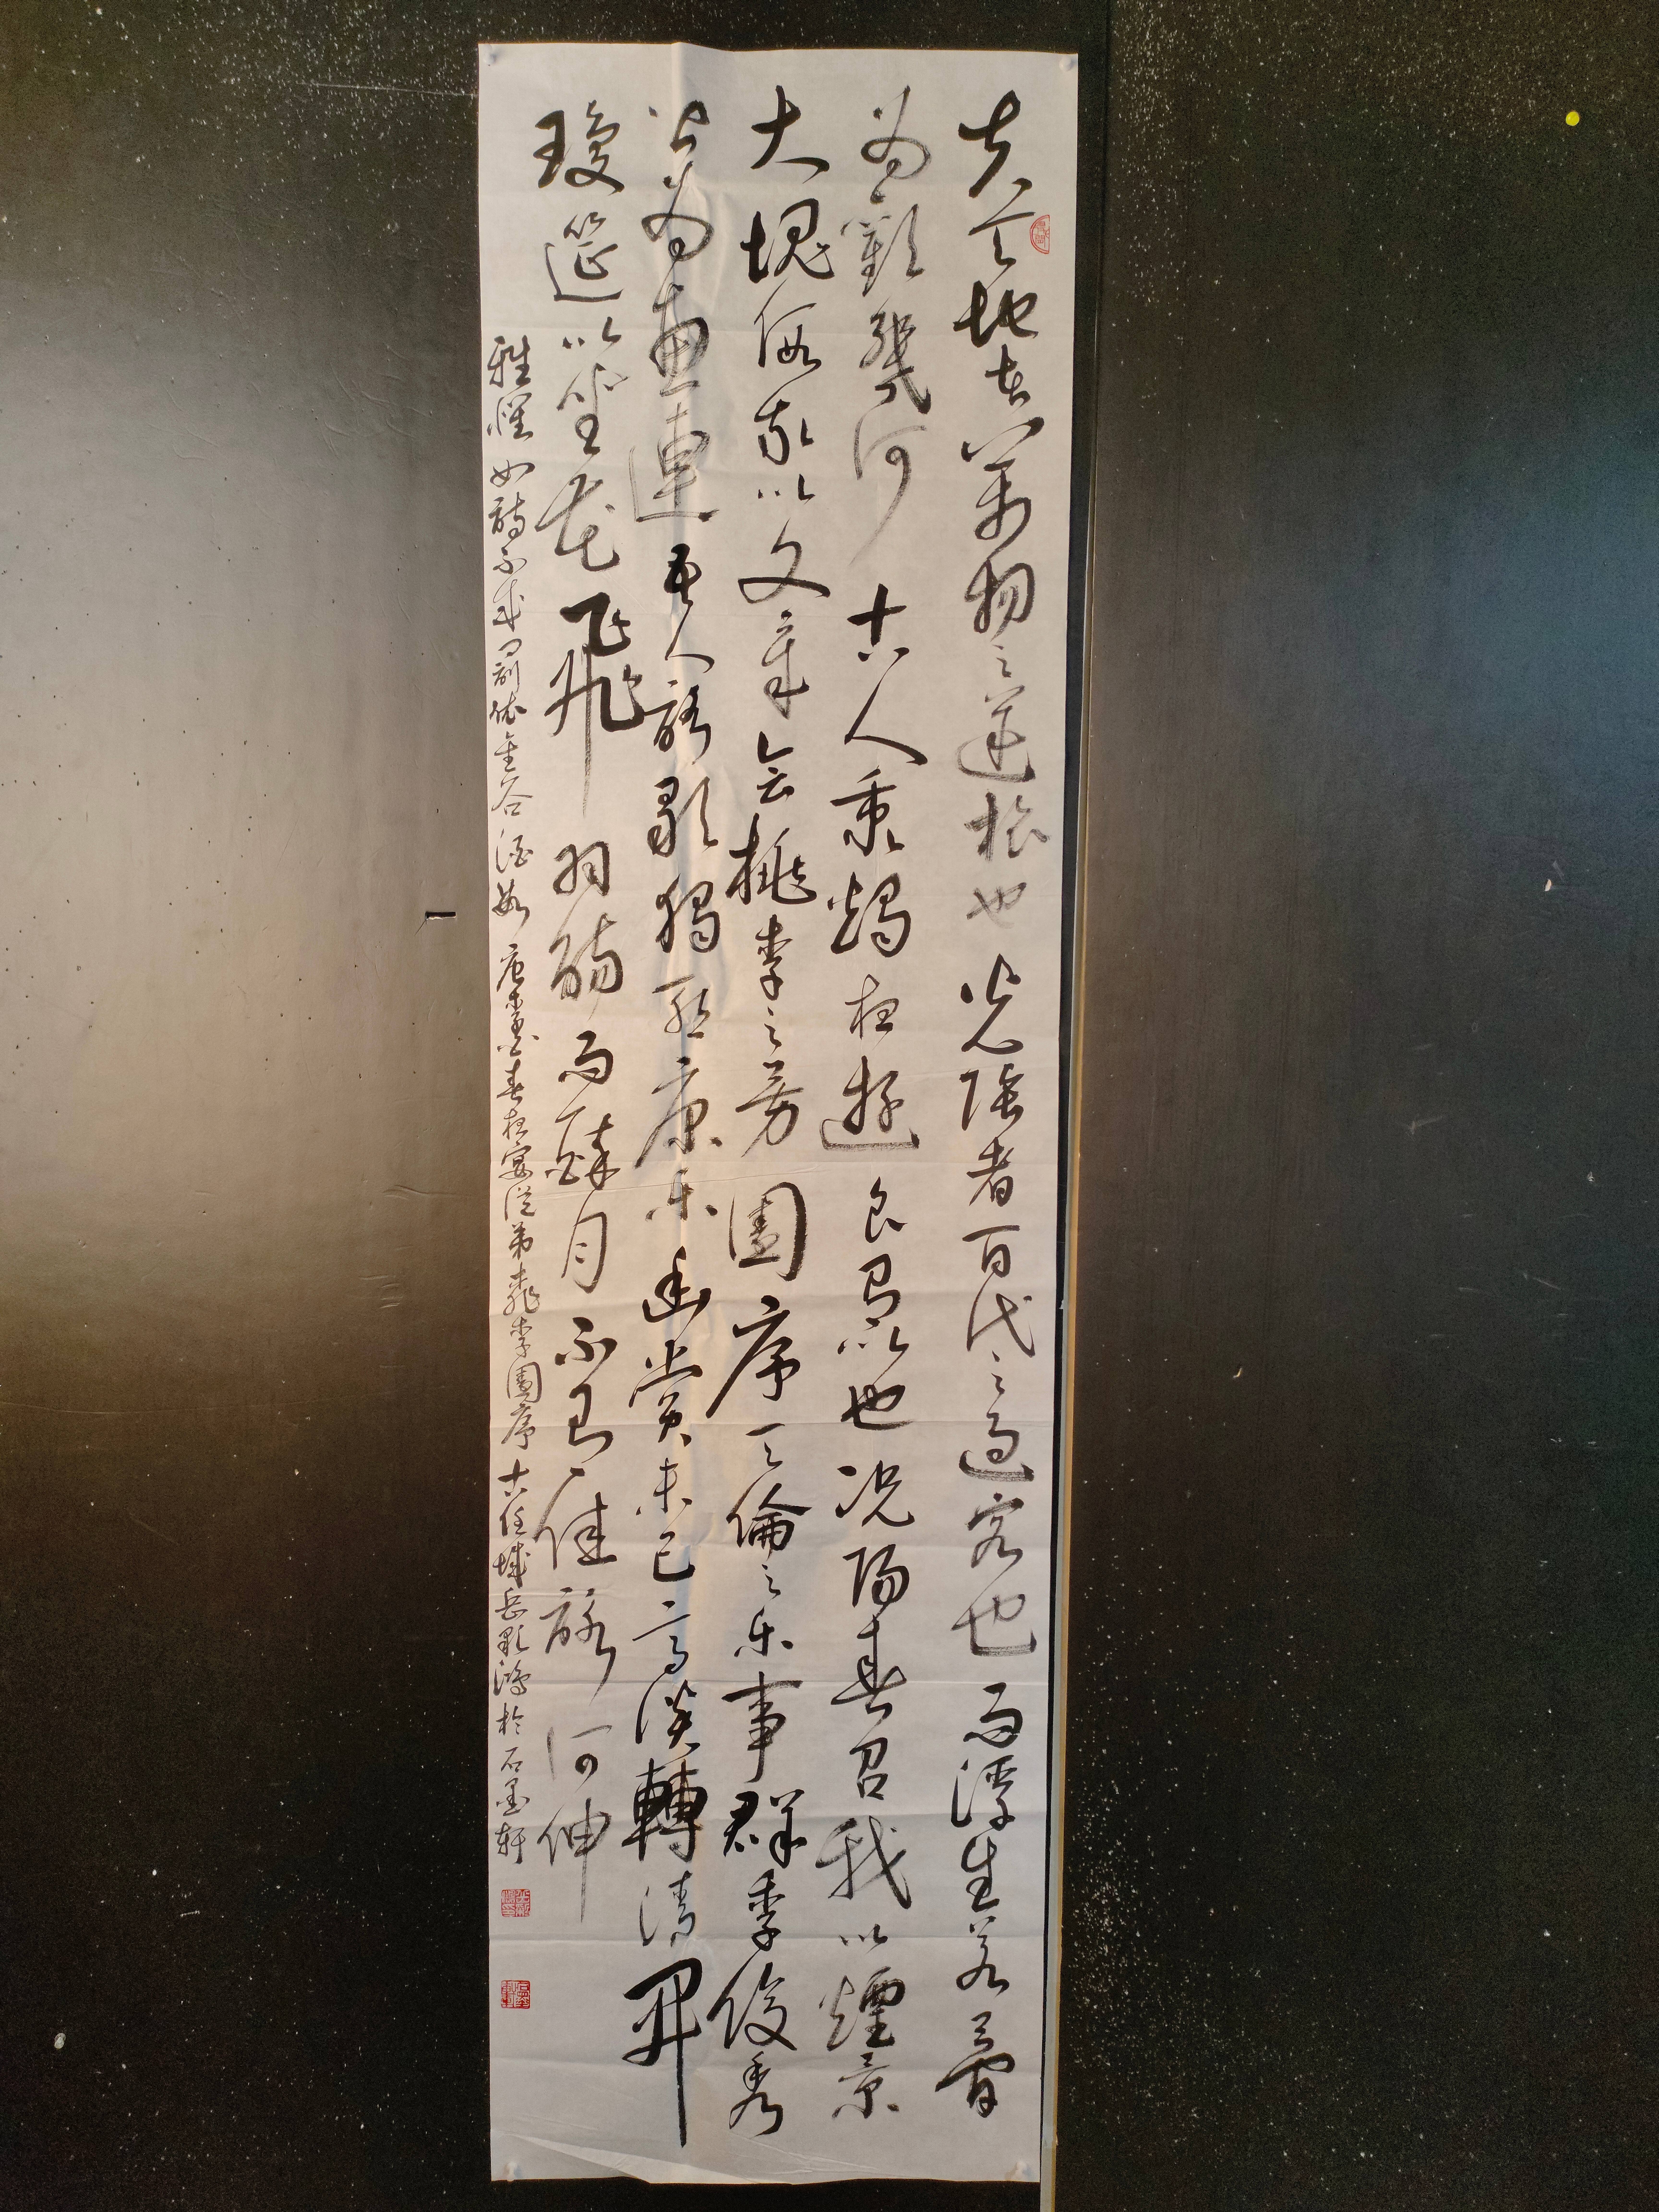 夫天地者万物之逆旅也光陰者百代之過客也而浮生若夢
为歡幾何古人秉燭夜遊良有以也况陽春召我以煙景
大塊假我以文章会桃李之芳園序天倫之乐事群季俊秀
皆为惠連吾人詠歌獨慙康乐幽赏未已高談轉清開
瓊筵以坐花飛羽觴而醉月不有佳詠何伸
雅懷如詩不成罰依金谷酒數唐李白春夜宴従弟桃李園序古任城岳彩鴻於石墨轩